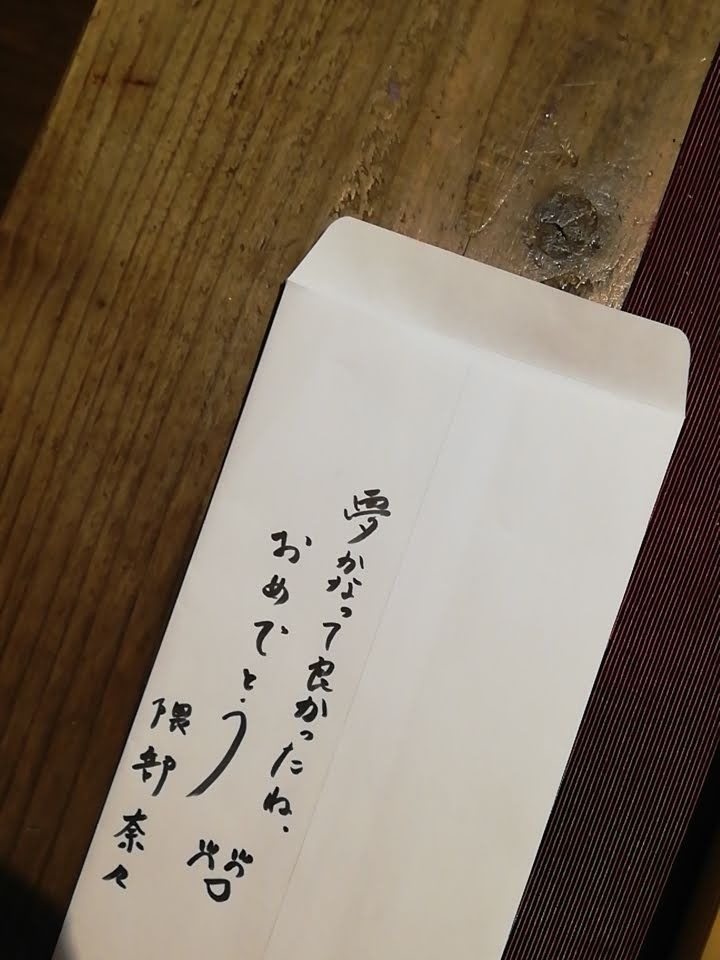 夢かなって良かったね、
おめでとう
隈部奈々